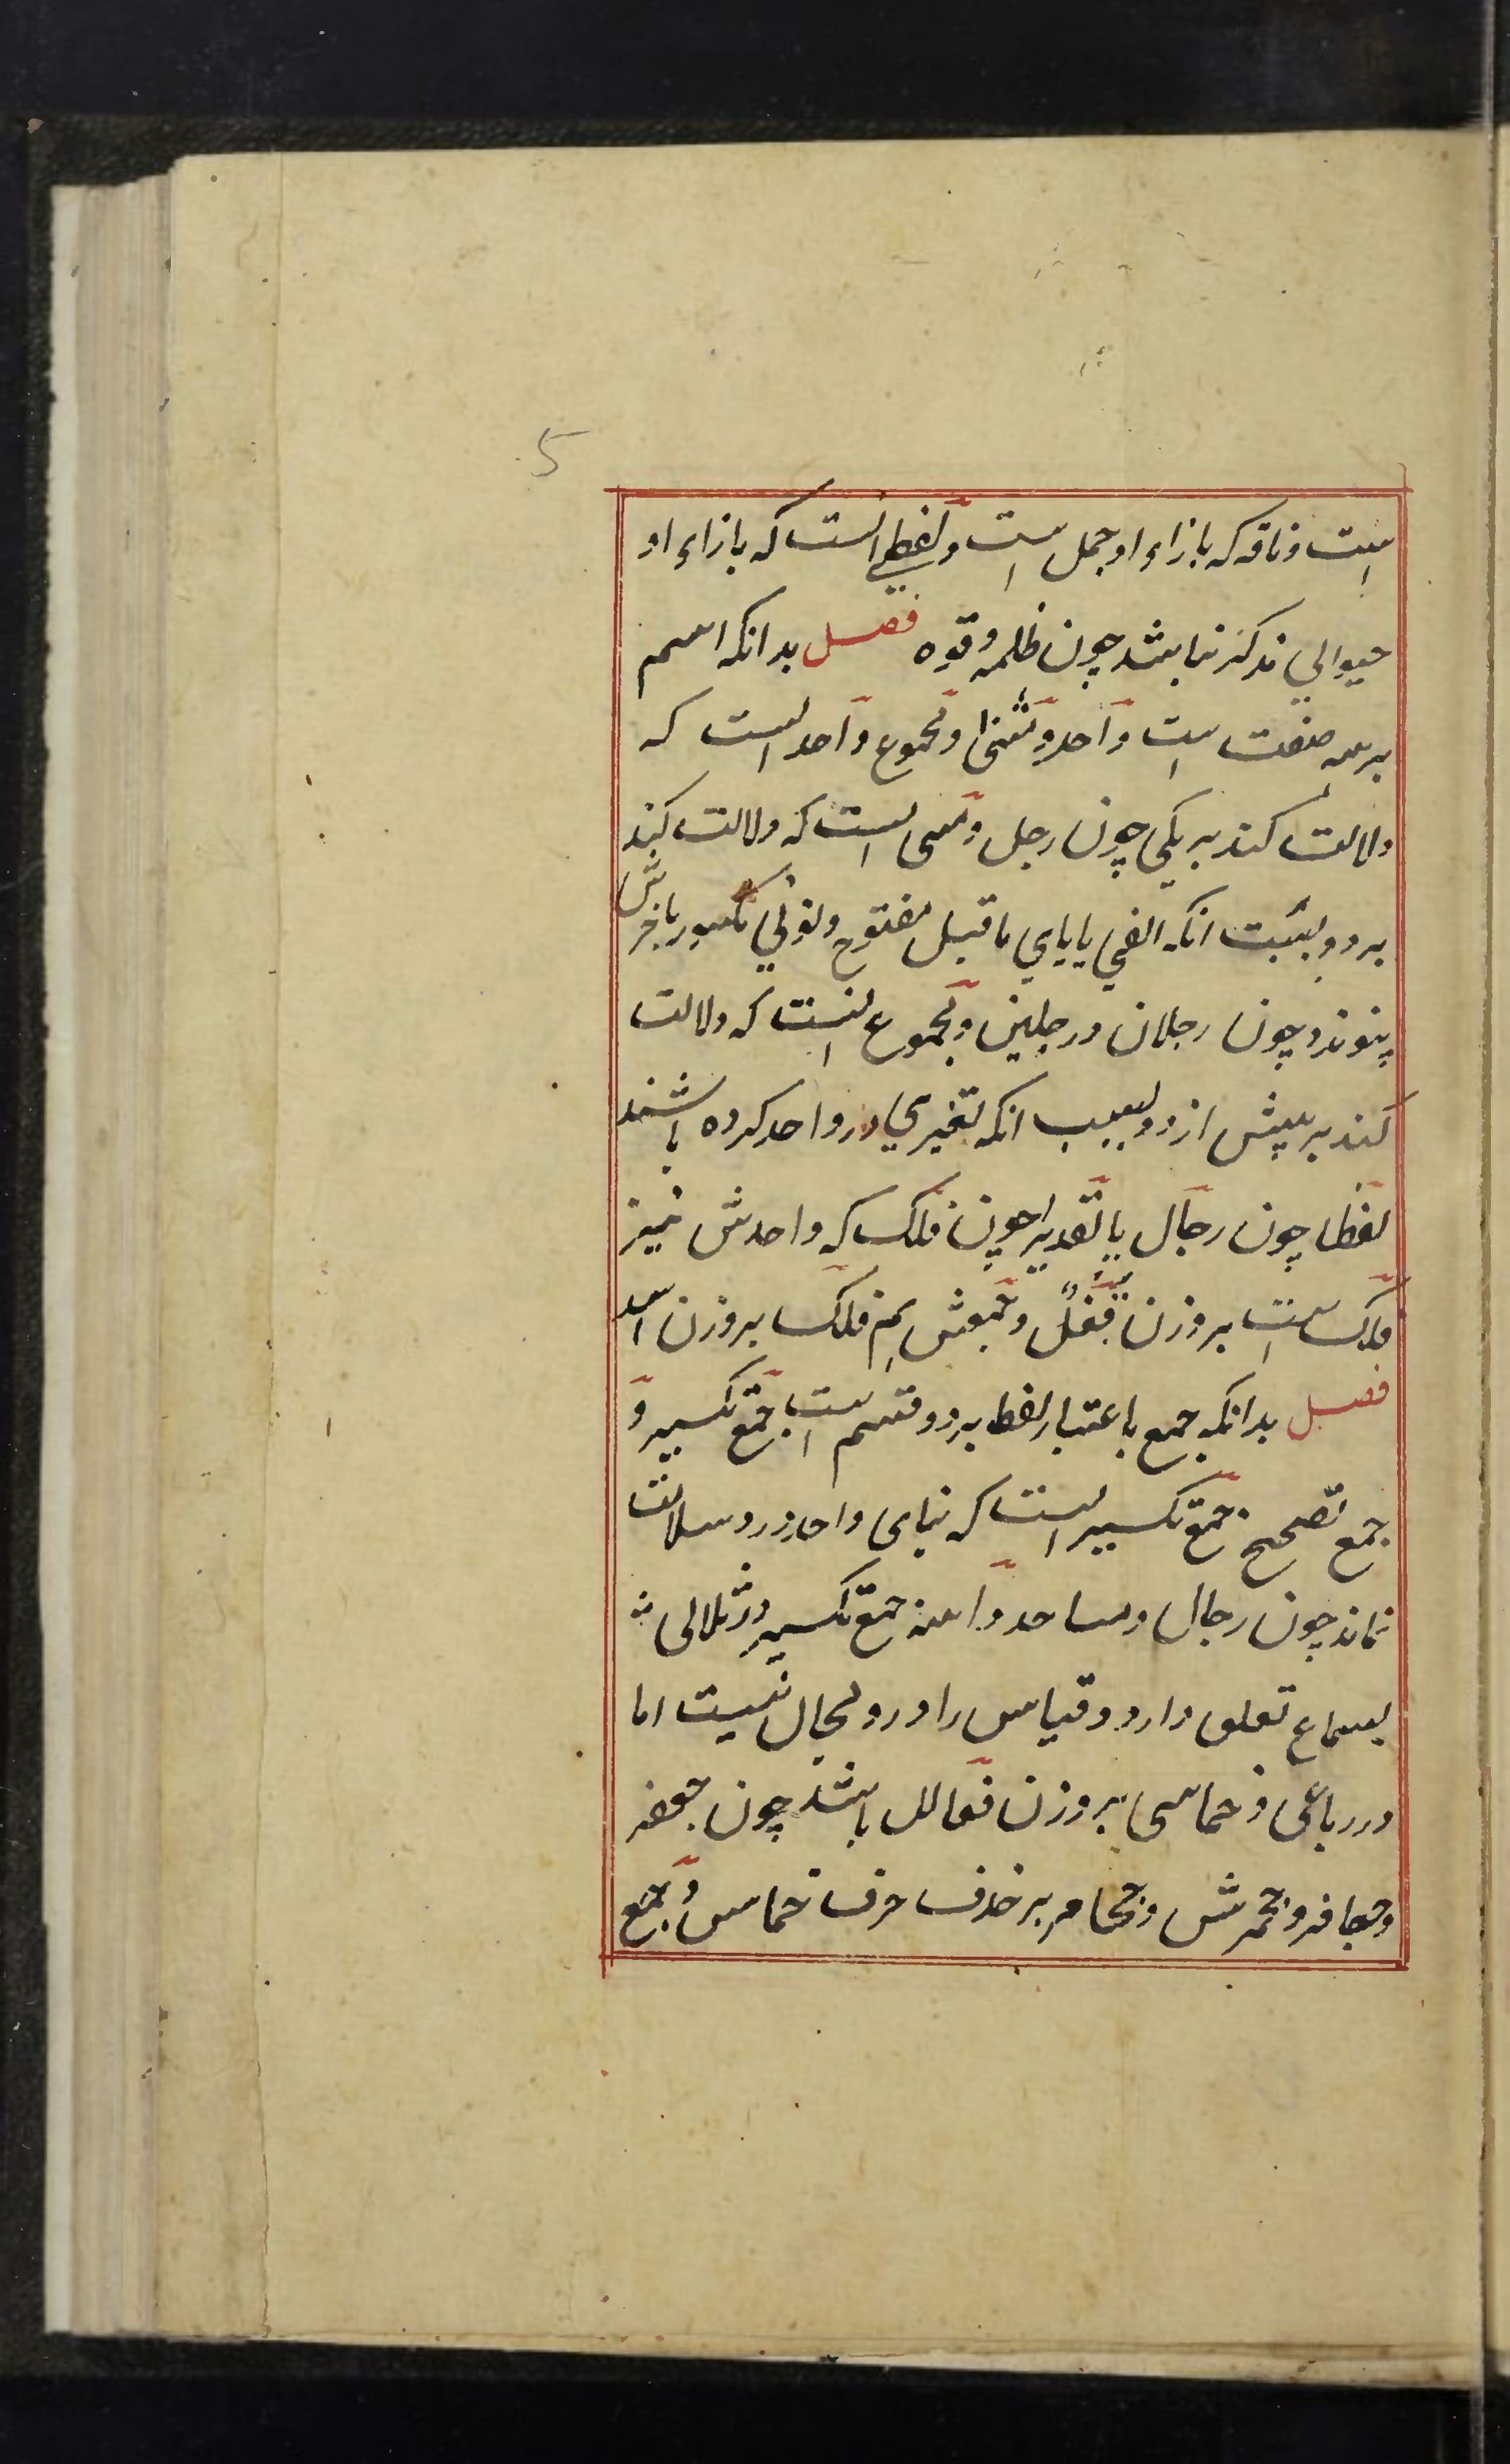 5
است و ناقه که بازاء او جمل است و لفظی انست که بازاء او
حیوانی مذکر نباشد چون ظلمه و قوه فصل بدانکه اسم
بر سه صنفت است واحد و مثنی و مجموع واحد انست که
دلالت کند بر یکی چون رجل و مثنی انست که دلالت کند
بر دو بسبب انکه الفی یا یای ماقبل مفتوح و نونی مکسور باخرش
پیوندد چون رجلان و رجلین و مجموع انست که دلالت
کند بر بیش از دو بسبب انکه تغیری در واحد کرده باشند
لفظا چون رجال یا تقدیرا چون فلک که واحدش نیز
فلک است بر وزن قفل و جمعش هم فلک بر وزن اسد
فصل بدانکه جمع باعتبار لفظ بر دو قسم است جمع تکسیر و
جمع تصحیح جمع تکسیر انست که بنای واحد درو سلامت
نماند چون رجال و مساجد و ابنیه جمع تکسیر در ثلاثی
بسماع تعلق دارد و قیاس را درو مجال نیست اما
در رباعی و خماسی بر وزن فعالل باشد چون جعفر
و جعافر و جحمرش و جحامر بر حذف حرف خامس و جمع